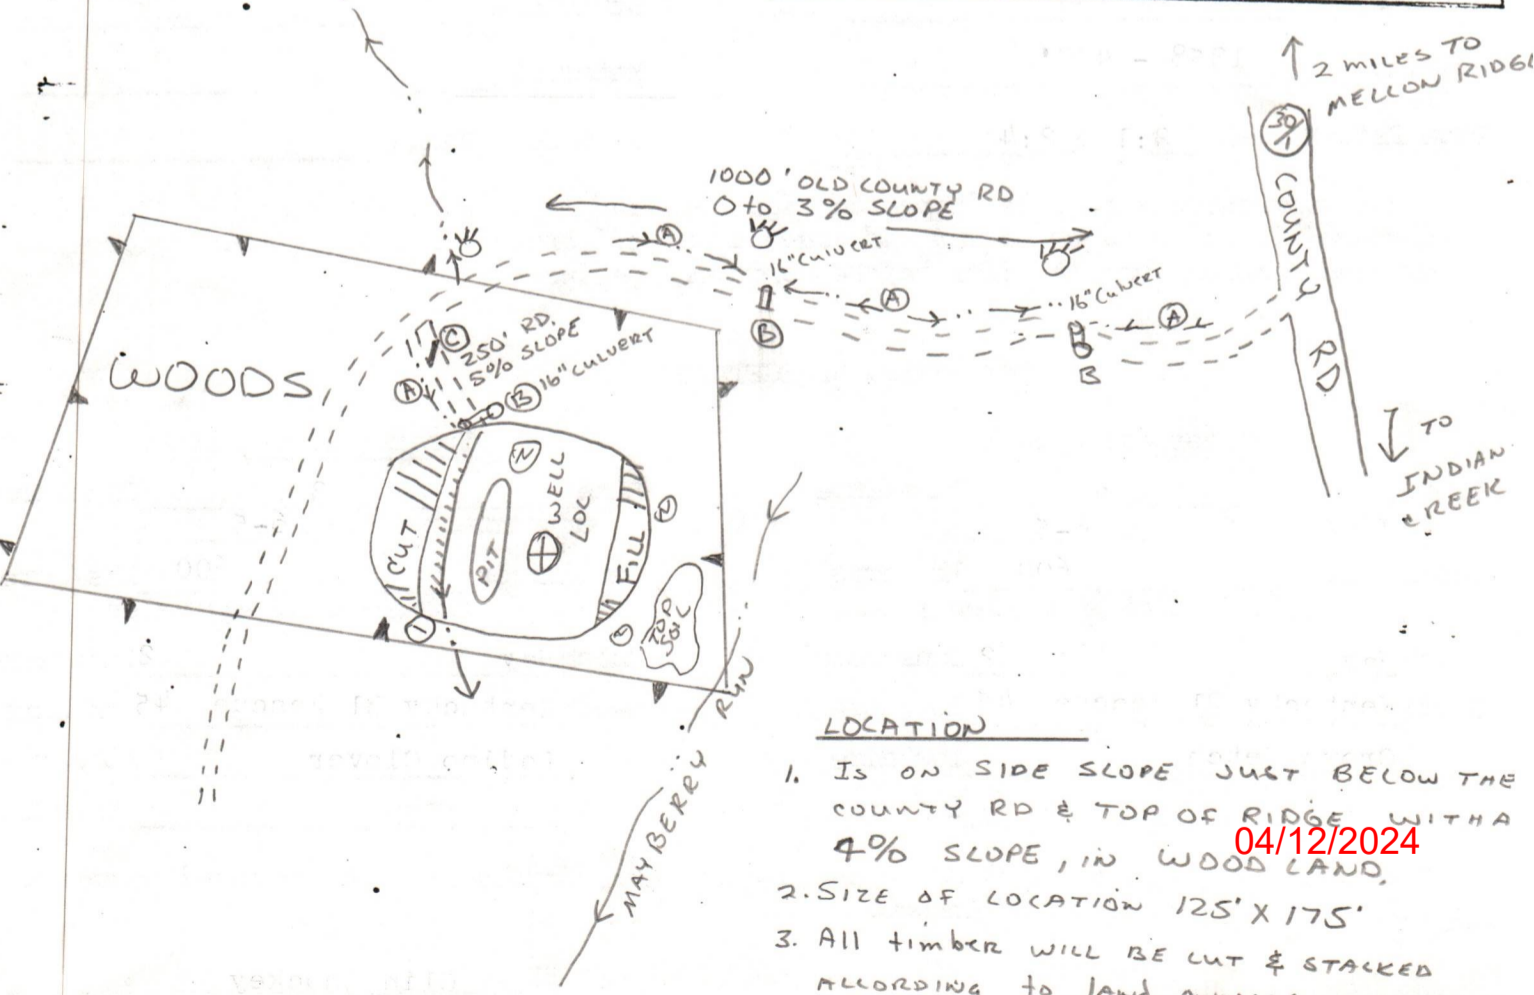 2 MILES TO
MELLON RIDGE
30/1
COUNTY RD
1000' OLD COUNTY RD
0 to 3% SLOPE
A
16" Culvert
A
16" Culvert
A
B
B
C
250' RD.
5% SLOPE
A
B 16" CULVERT
WOODS
TO
INDIAN
CREEK
2
CUT
PIT
WELL
LOC
FILL
2
1
2
TOP
SOIL
MAYBERRY RUN
LOCATION
1. IS ON SIDE SLOPE JUST BELOW THE
COUNTY RD & TOP OF RIDGE WITH A
04/12/2024
4% SLOPE, IN WOOD LAND.
2. SIZE OF LOCATION 125' X 175'
3. All timber WILL BE CUT & STACKED
ACCORDING to land